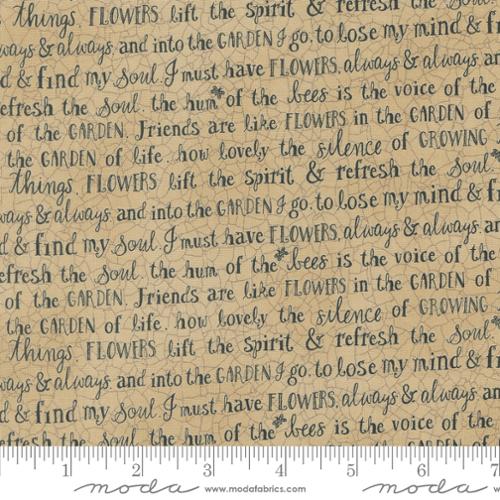 things. FLOWERS lift the spirit & refresh the soul
ways & always. and into the GARDEN I go. to lose my mind &
d & find my soul. I must have FLOWERS. always & always. an
efresh the soul. the hum of the bees is the voice of the
of the GARDEN. Friends are like FLOWERS in the GARDEN of
the GARDEN of life. how lovely the silence of GROWING
things. FLOWERS lift the spirit & refresh the soul
ways & always. and into the GARDEN I go. to lose my mind &
d & find my soul. I must have FLOWERS. always & always. an
efresh the soul. the hum of the bees is the voice of the
of the GARDEN. Friends are like FLOWERS in the GARDEN of
the GARDEN of life. how lovely the silence of GROWING
things. FLOWERS lift the spirit & refresh the soul
ways & always. and into the GARDEN I go. to lose my mind & fi
d & find my soul. I must have FLOWERS. always & always. an
refresh the soul. the hum of the bees is the voice of the
1 2 3 4 5 6 7
moda www.modafabrics.com moda